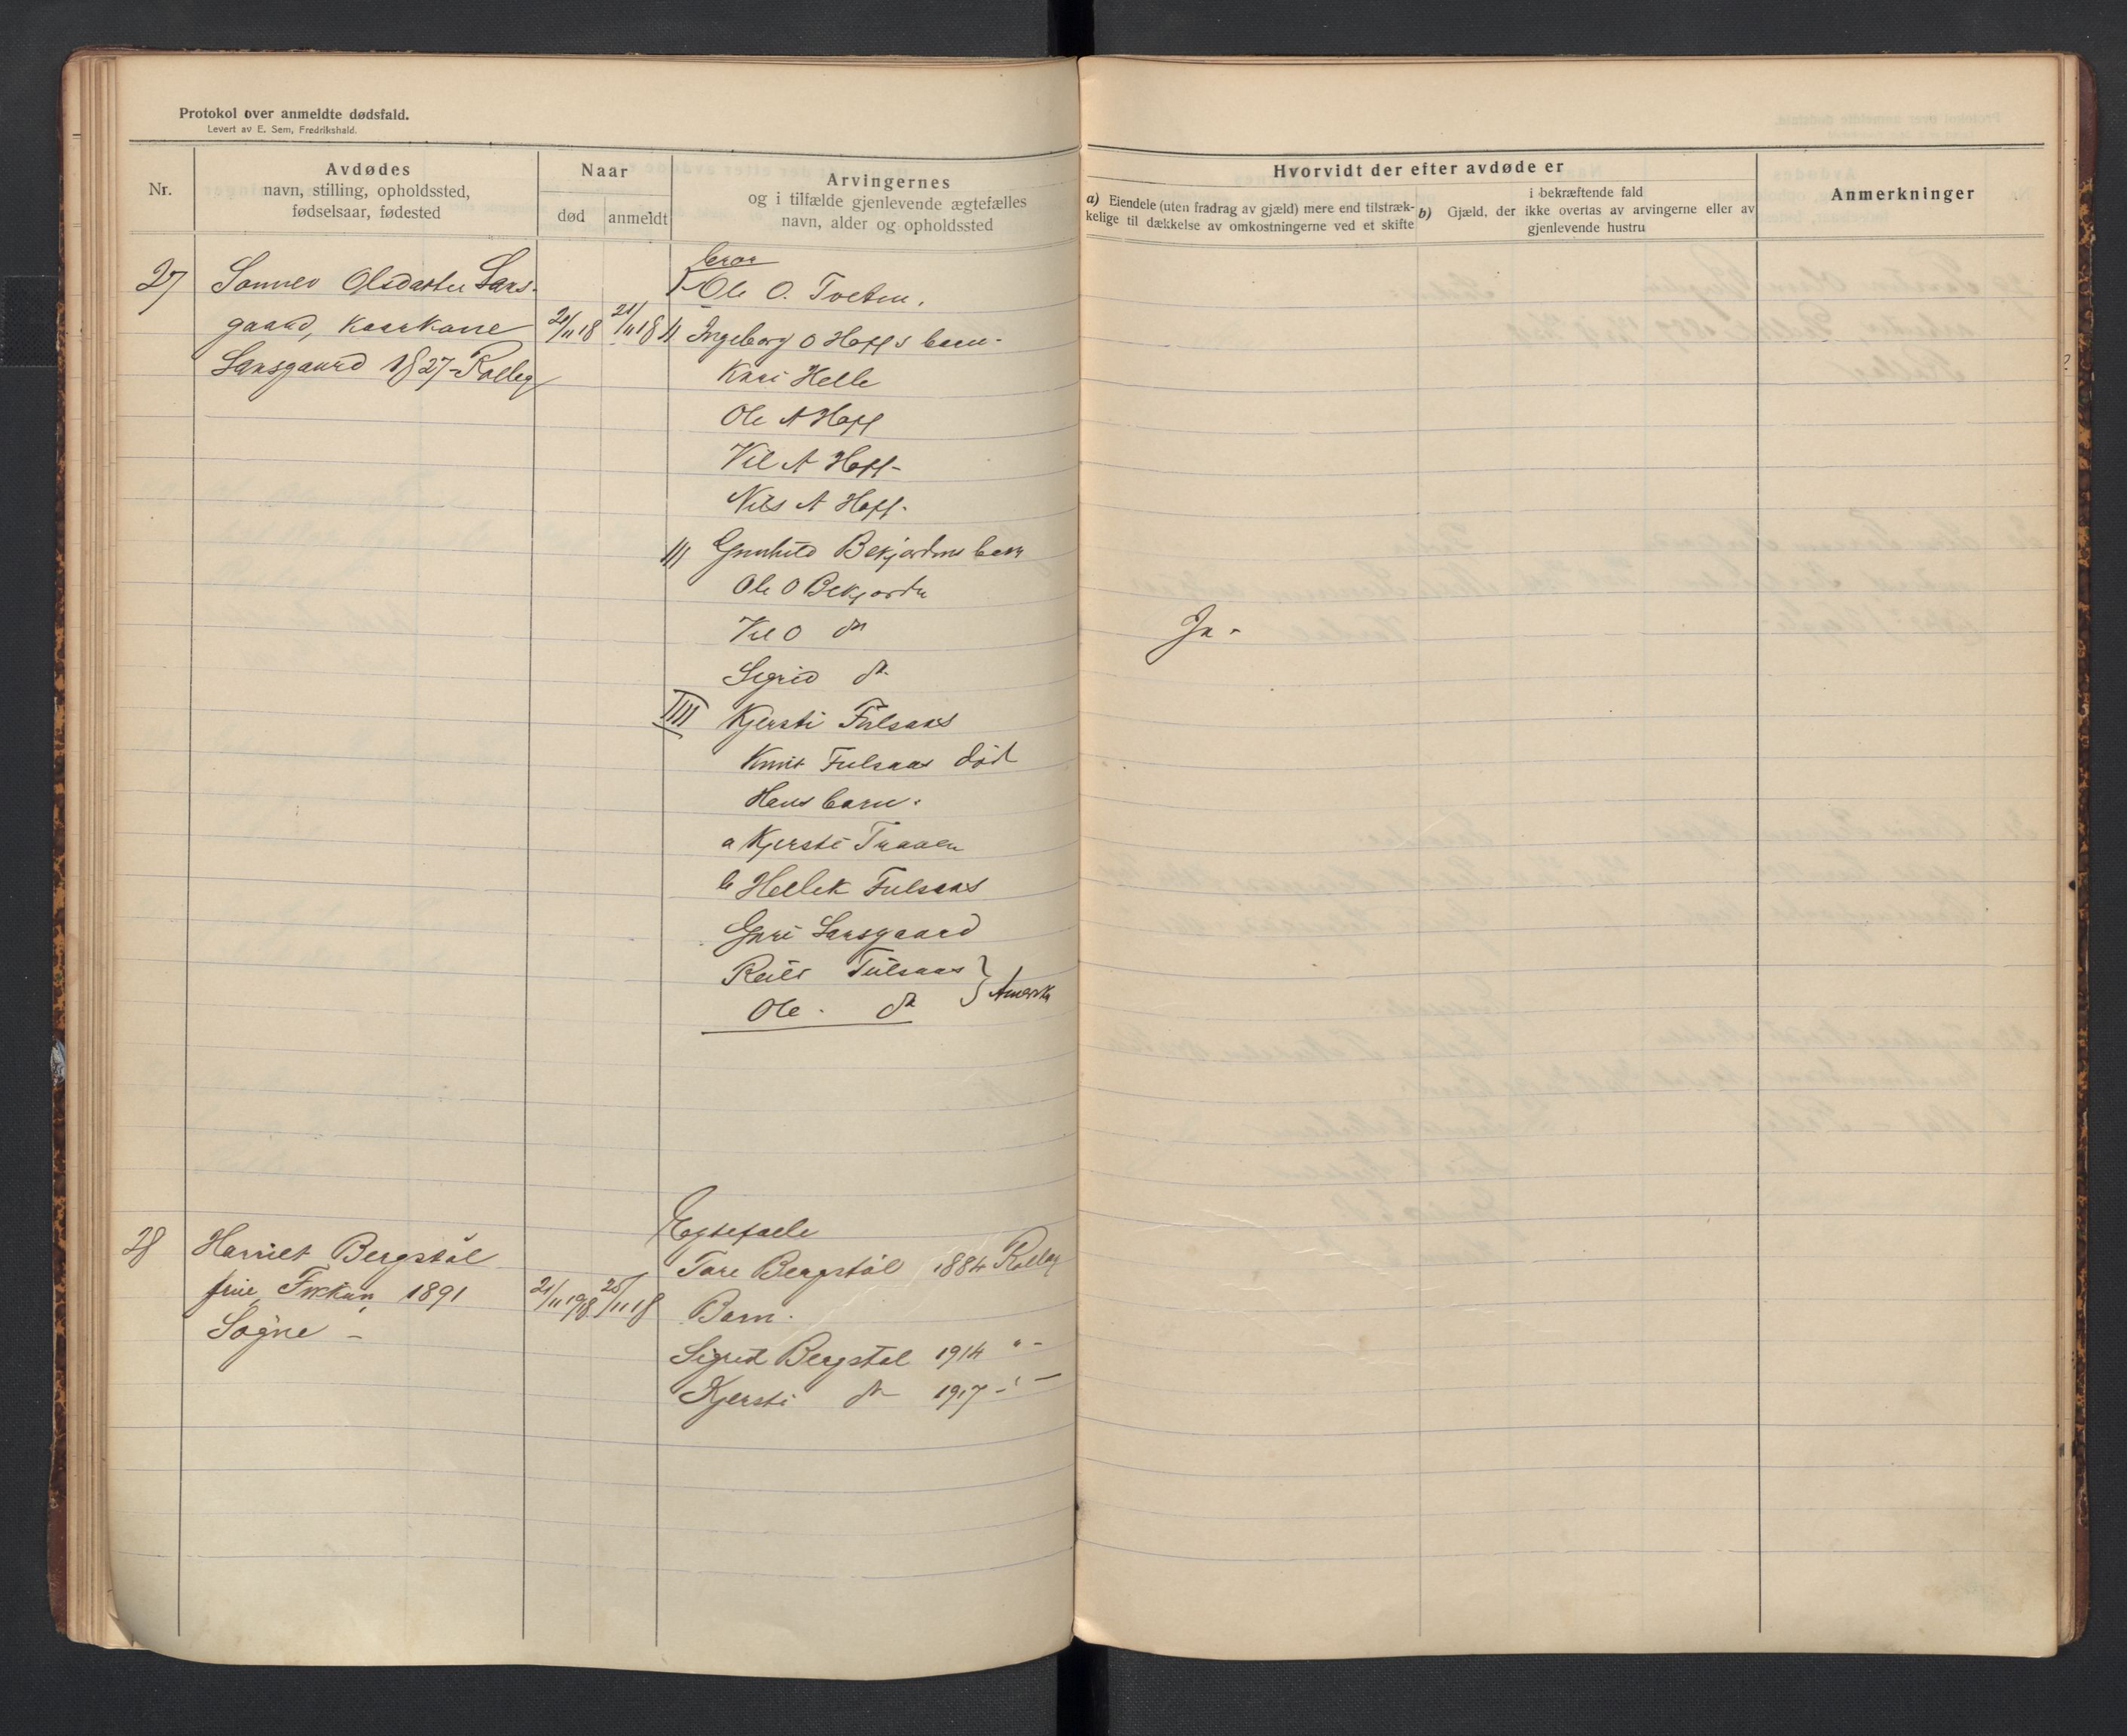 Protokol over anmeldte dødsfald.
Levert av E. Sem, Fredrikshald.
Nr.
Avdødes
navn, stilling, opholdssted,
fødselsaar, fødested
Naar
død
anmeldt
Arvingernes
og i tilfælde gjenlevende ægtefælles
navn, alder og opholdssted
Hvorvidt der efter avdøde er
a) Eiendele (uten fradrag av gjæld) mere end tilstræk-
kelige til dækkelse av omkostningerne ved et skifte
b) Gjæld, der
i bekræftende fald
ikke overtas av arvingerne eller av
gjenlevende hustru
Anmerkninger
27
Olsdatter Lars-
gaard, Kaarkone
Larsgaard 1827 - Rolleg
21/11 18
bror
I Ole O. Tveten.
II Ingeborg O Hoffs barn.
Kari Helle
Ole A Hoff
A Hoff -
Nils A Hoff.
III Gunhild Bekjordens barn
Ole O Bekjorden
O do
Sigrid do
IIII Kjersti Fulsaas
Knut Fulsaas død
Hans barn.
a Kjersti Traaen
b Hellek Fulsaas
Guri Larsgaard
Fulsaas
Ole. do
} Amerik
Ja -
28
Harriet Bergstøl
frue, 1891
Søgne -
21/11 1918
25/11 18
Egtefælle
Tore Bergstøl 1884 Rollag
Barn.
Sigrid Bergstøl 1914 " -
Kjersti do 1917 - " -